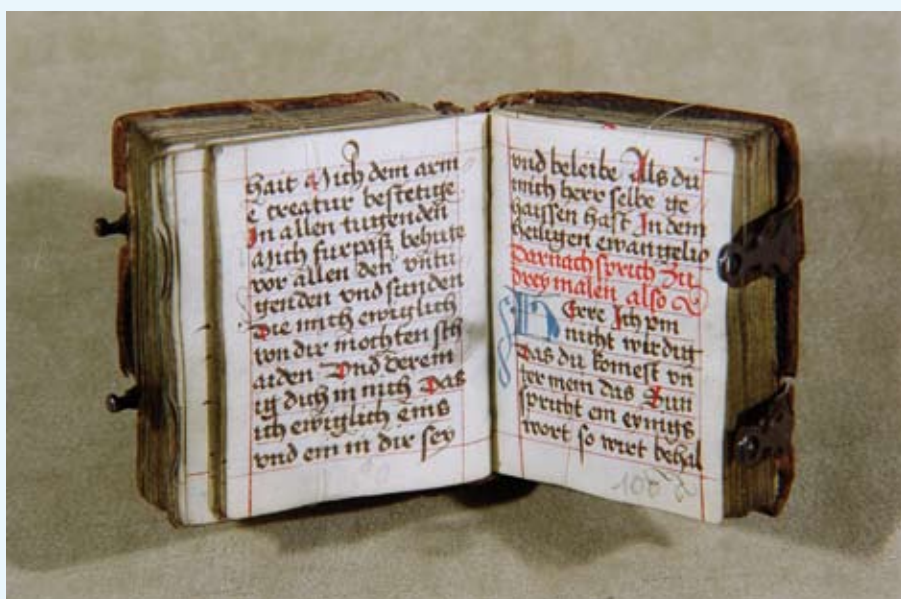 hait Mich dem arm
e creatur bestetige
In allen tugenden
Mich furpaß behute
vor allen den vntu
genden vnd sunden
Die mich ewiglich
von dir mochten sch
aiden Vnd verein
ig dich in mich Das
ich ewiglich eins
vnd ein in dir sey
vnd beleibe Als du
mich herr selbe ge
haissen hast In dem
heiligen ewangelio
Darnach sprich zu
drey malen also
Herre Ich bin
nicht wirdig
Das du komest vn
ter mein das Sun
spricht ein eynigs
wort so wirt behal
108